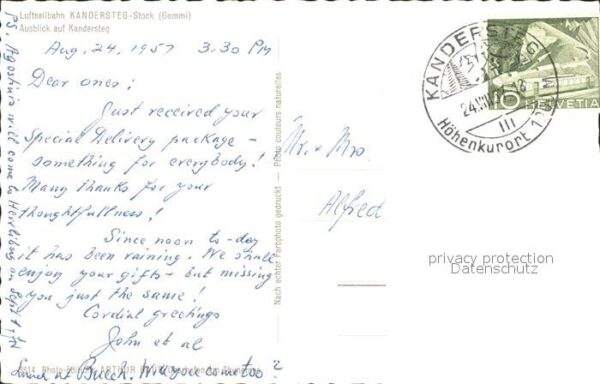 Luftseilbahn KANDERSTEG-Stock (Gemmi)
Ausblick auf Kandersteg
Aug. 24, 1957 3.30 PM
Dear ones;
Just received your
Special Delivery package -
something for everybody!
Many thanks for your
thoughtfullness!
Since noon to-day
it has been raining. We shall
enjoy your gifts - but missing
you just the same!
Cordial greetings
John et al
Photo ARTHUR
Lunch at Buech. Will you come too?
PS. will come to on Sept 1
Nach echter Farbphoto gedruckt — Photo couleurs naturelles
Mr. & Mrs.
Alfred
KANDERSTEG
24.VIII
Höhenkurort
10 HELVETIA
privacy protection
Datenschutz